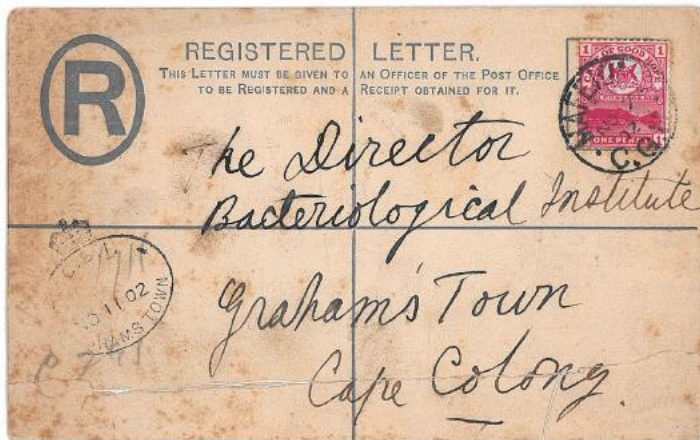 REGISTERED LETTER.
THIS LETTER MUST BE GIVEN TO AN OFFICER OF THE POST OFFICE
TO BE REGISTERED AND A RECEIPT OBTAINED FOR IT.
R
1 1
CAPE OF GOOD HOPE
ONE PENNY
C.G.
The Director
Bacteriological Institute
Graham's Town
Cape Colony.
NO 11 02